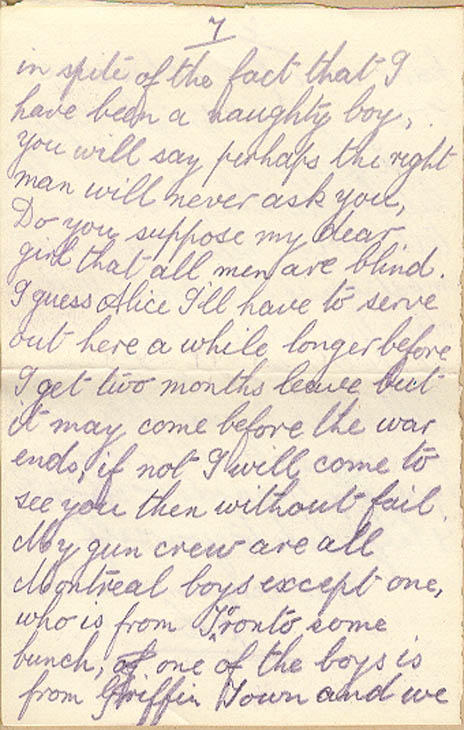 7
in spite of the fact that I
have been a naughty boy,
you will say perhaps the right
man will never ask you,
Do you suppose my dear
girl that all men are blind.
I guess Alice I'll have to serve
out here a while longer before
I get two months leave but
it may come before the war
ends, if not I will come to
see you then without fail.
My gun crew are all
Montreal boys except one,
who is from Tronto some
bunch, of one of the boys is
from Griffin Town and we